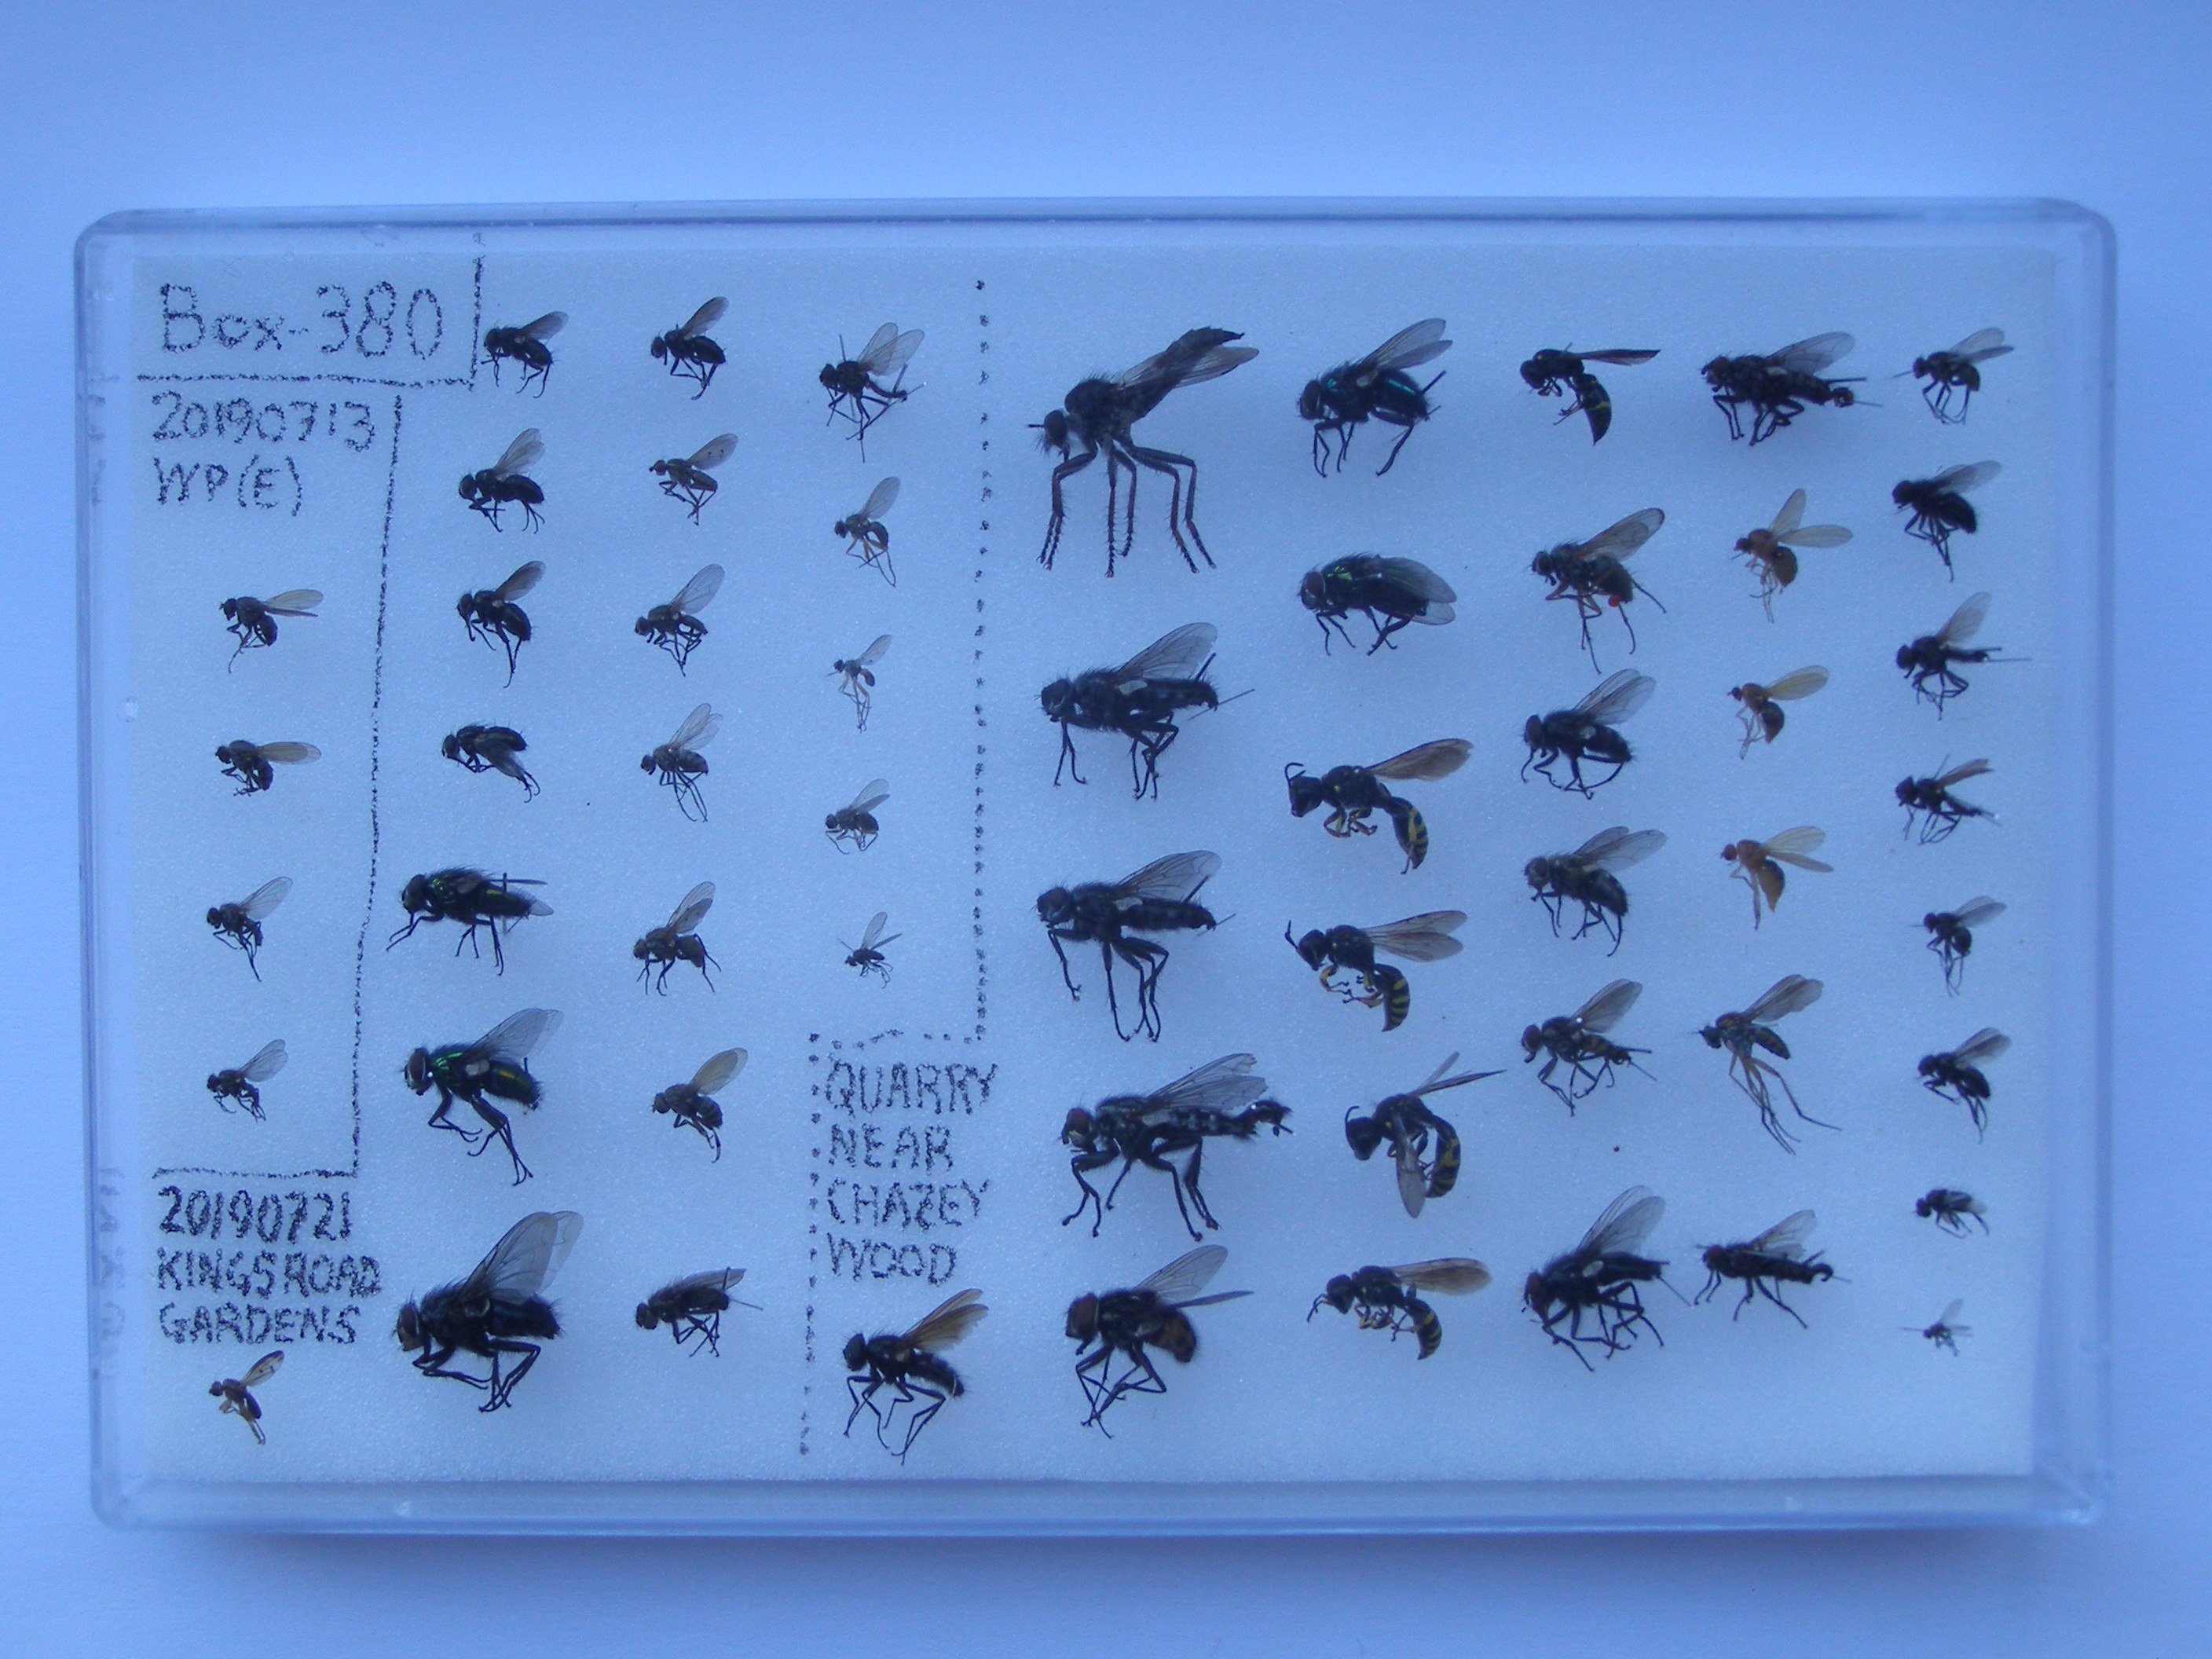 Box-380
20190713
WP(E)
20190721
KINGSROAD
GARDENS
QUARRY
NEAR
CHAZEY
WOOD